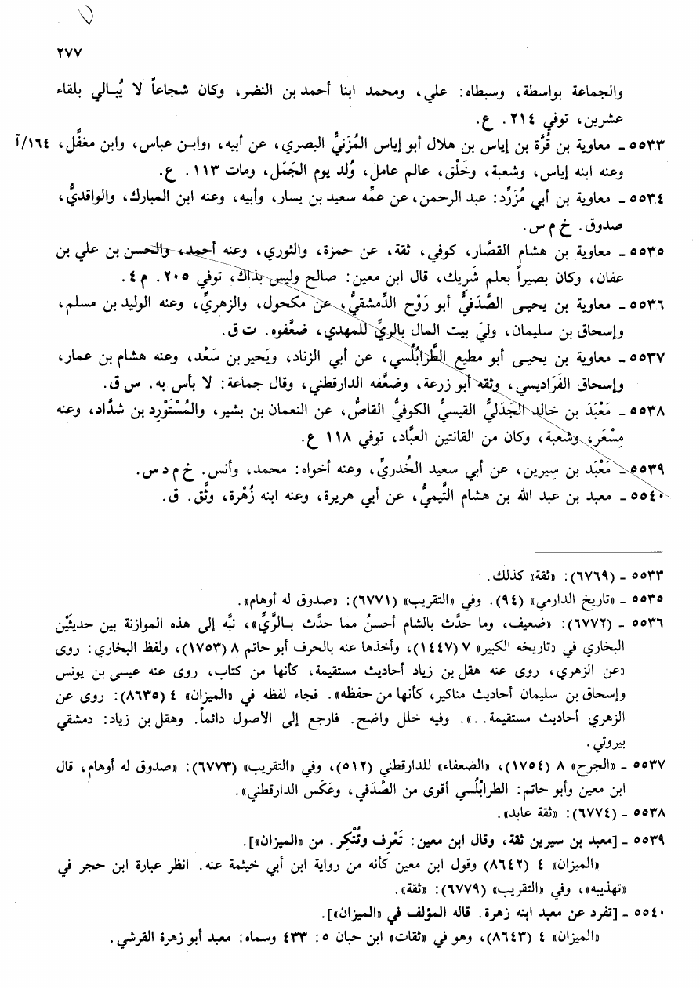 ٢٧٧
والجماعة بواسطة، وسبطاه: علي، ومحمد ابنا أحمد بن النضر، وكان شجاعاً لا يُبالي بلقاء
عشرين، توفي ٢١٤. ع.
٥٥٣٣ ـ معاوية بن قُرَّة بن إياس بن هلال أبو إياس المُزَنيُّ البصري، عن أبيه، وابن عباس، وابن مغفَّل، ١٦٤/آ
وعنه ابنه إياس، وشعبة، وخَلْق، عالم عامل، وُلد يوم الجَمَل، ومات ١١٣. ع.
٥٥٣٤ ـ معاوية بن أبي مُزَرِّد: عبد الرحمن، عن عمِّه سعيد بن يسار، وأبيه، وعنه ابن المبارك، والواقديُّ،
صدوق. خ م س.
٥٥٣٥ ـ معاوية بن هشام القصَّار، كوفي، ثقة، عن حمزة، والثوري، وعنه أحمد، والحسن بن علي بن
عفان، وكان بصيراً بعلم شَريك، قال ابن معين: صالح وليس بذاك، توفي ٢٠٥. م ٤.
٥٥٣٦ ـ معاوية بن يحيى الصَّدَفيُّ أبو رَوْح الدِّمشقيُّ، عن مكحول، والزهريِّ، وعنه الوليد بن مسلم،
وإسحاق بن سليمان، وليَ بيت المال بالريِّ للمهدي، ضعَّفوه. ت ق.
٥٥٣٧ ـ معاوية بن يحيى أبو مطيع الطَّرابُلُسي، عن أبي الزناد، وبَحير بن سَعْد، وعنه هشام بن عمار،
وإسحاق الفَراديسي، وثقه أبو زرعة، وضعَّفه الدارقطني، وقال جماعة: لا بأس به. س ق.
٥٥٣٨ ـ مَعْبَد بن خالد الجَدَليُّ القيسيُّ الكوفيُّ القاصُّ، عن النعمان بن بشير، والمُسْتَورِد بن شدَّاد، وعنه
مِسْعَر، وشعبة، وكان من القانتين العبَّاد، توفي ١١٨ ع.
٥٥٣٩ ـ مَعْبَد بن سيرين، عن أبي سعيد الخُدريِّ، وعنه أخواه: محمد، وأنس. خ م د س.
٥٥٤٠ ـ معبد بن عبد الله بن هشام التَّيميُّ، عن أبي هريرة، وعنه ابنه زُهْرة، وثِّق. ق.
٥٥٣٣ ـ (٦٧٦٩): «ثقة» كذلك.
٥٥٣٥ ـ «تاريخ الدارمي» (٩٤). وفي «التقريب» (٦٧٧١): «صدوق له أوهام».
٥٥٣٦ ـ (٦٧٧٢): «ضعيف، وما حدَّث بالشام أحسنُ مما حدَّث بالرَّيِّ»، نبَّه إلى هذه الموازنة بين حديثَيْن
البخاري في «تاريخه الكبير» ٧ (١٤٤٧)، وأخذها عنه بالحرف أبو حاتم ٨ (١٧٥٣)، ولفظ البخاري: روى
«عن الزهري، روى عنه هقل بن زياد أحاديث مستقيمة، كأنها من كتاب، روى عنه عيسى بن يونس
وإسحاق بن سليمان أحاديث مناكير، كأنها من حفظه». فجاء لفظه في «الميزان» ٤ (٨٦٣٥): روى عن
الزهري أحاديث مستقيمة...». وفيه خلل واضح. فارجع إلى الأصول دائماً. وهقل بن زياد: دمشقي
بيروتي.
٥٥٣٧ ـ «الجرح» ٨ (١٧٥٤)، «الضعفاء» للدارقطني (٥١٢)، وفي «التقريب» (٦٧٧٣): «صدوق له أوهام، قال
ابن معين وأبو حاتم: الطرابُلُسي أقوى من الصَّدَفي، وعَكَس الدارقطني».
٥٥٣٨ ـ (٦٧٧٤): «ثقة عابد».
٥٥٣٩ ـ [معبد بن سيرين ثقة، وقال ابن معين: تَعْرِف وتُنْكِر. من «الميزان»].
«الميزان» ٤ (٨٦٤٢) وقول ابن معين كأنه من رواية ابن أبي خيثمة عنه. انظر عبارة ابن حجر في
«تهذيبه»، وفي «التقريب» (٦٧٧٩): «ثقة».
٥٥٤٠ ـ [تفرد عن معبد ابنه زهرة. قاله المؤلف في «الميزان»].
«الميزان» ٤ (٨٦٤٣)، وهو في «ثقات» ابن حبان ٥: ٤٣٣ وسماه: معبد أبو زهرة القرشي.